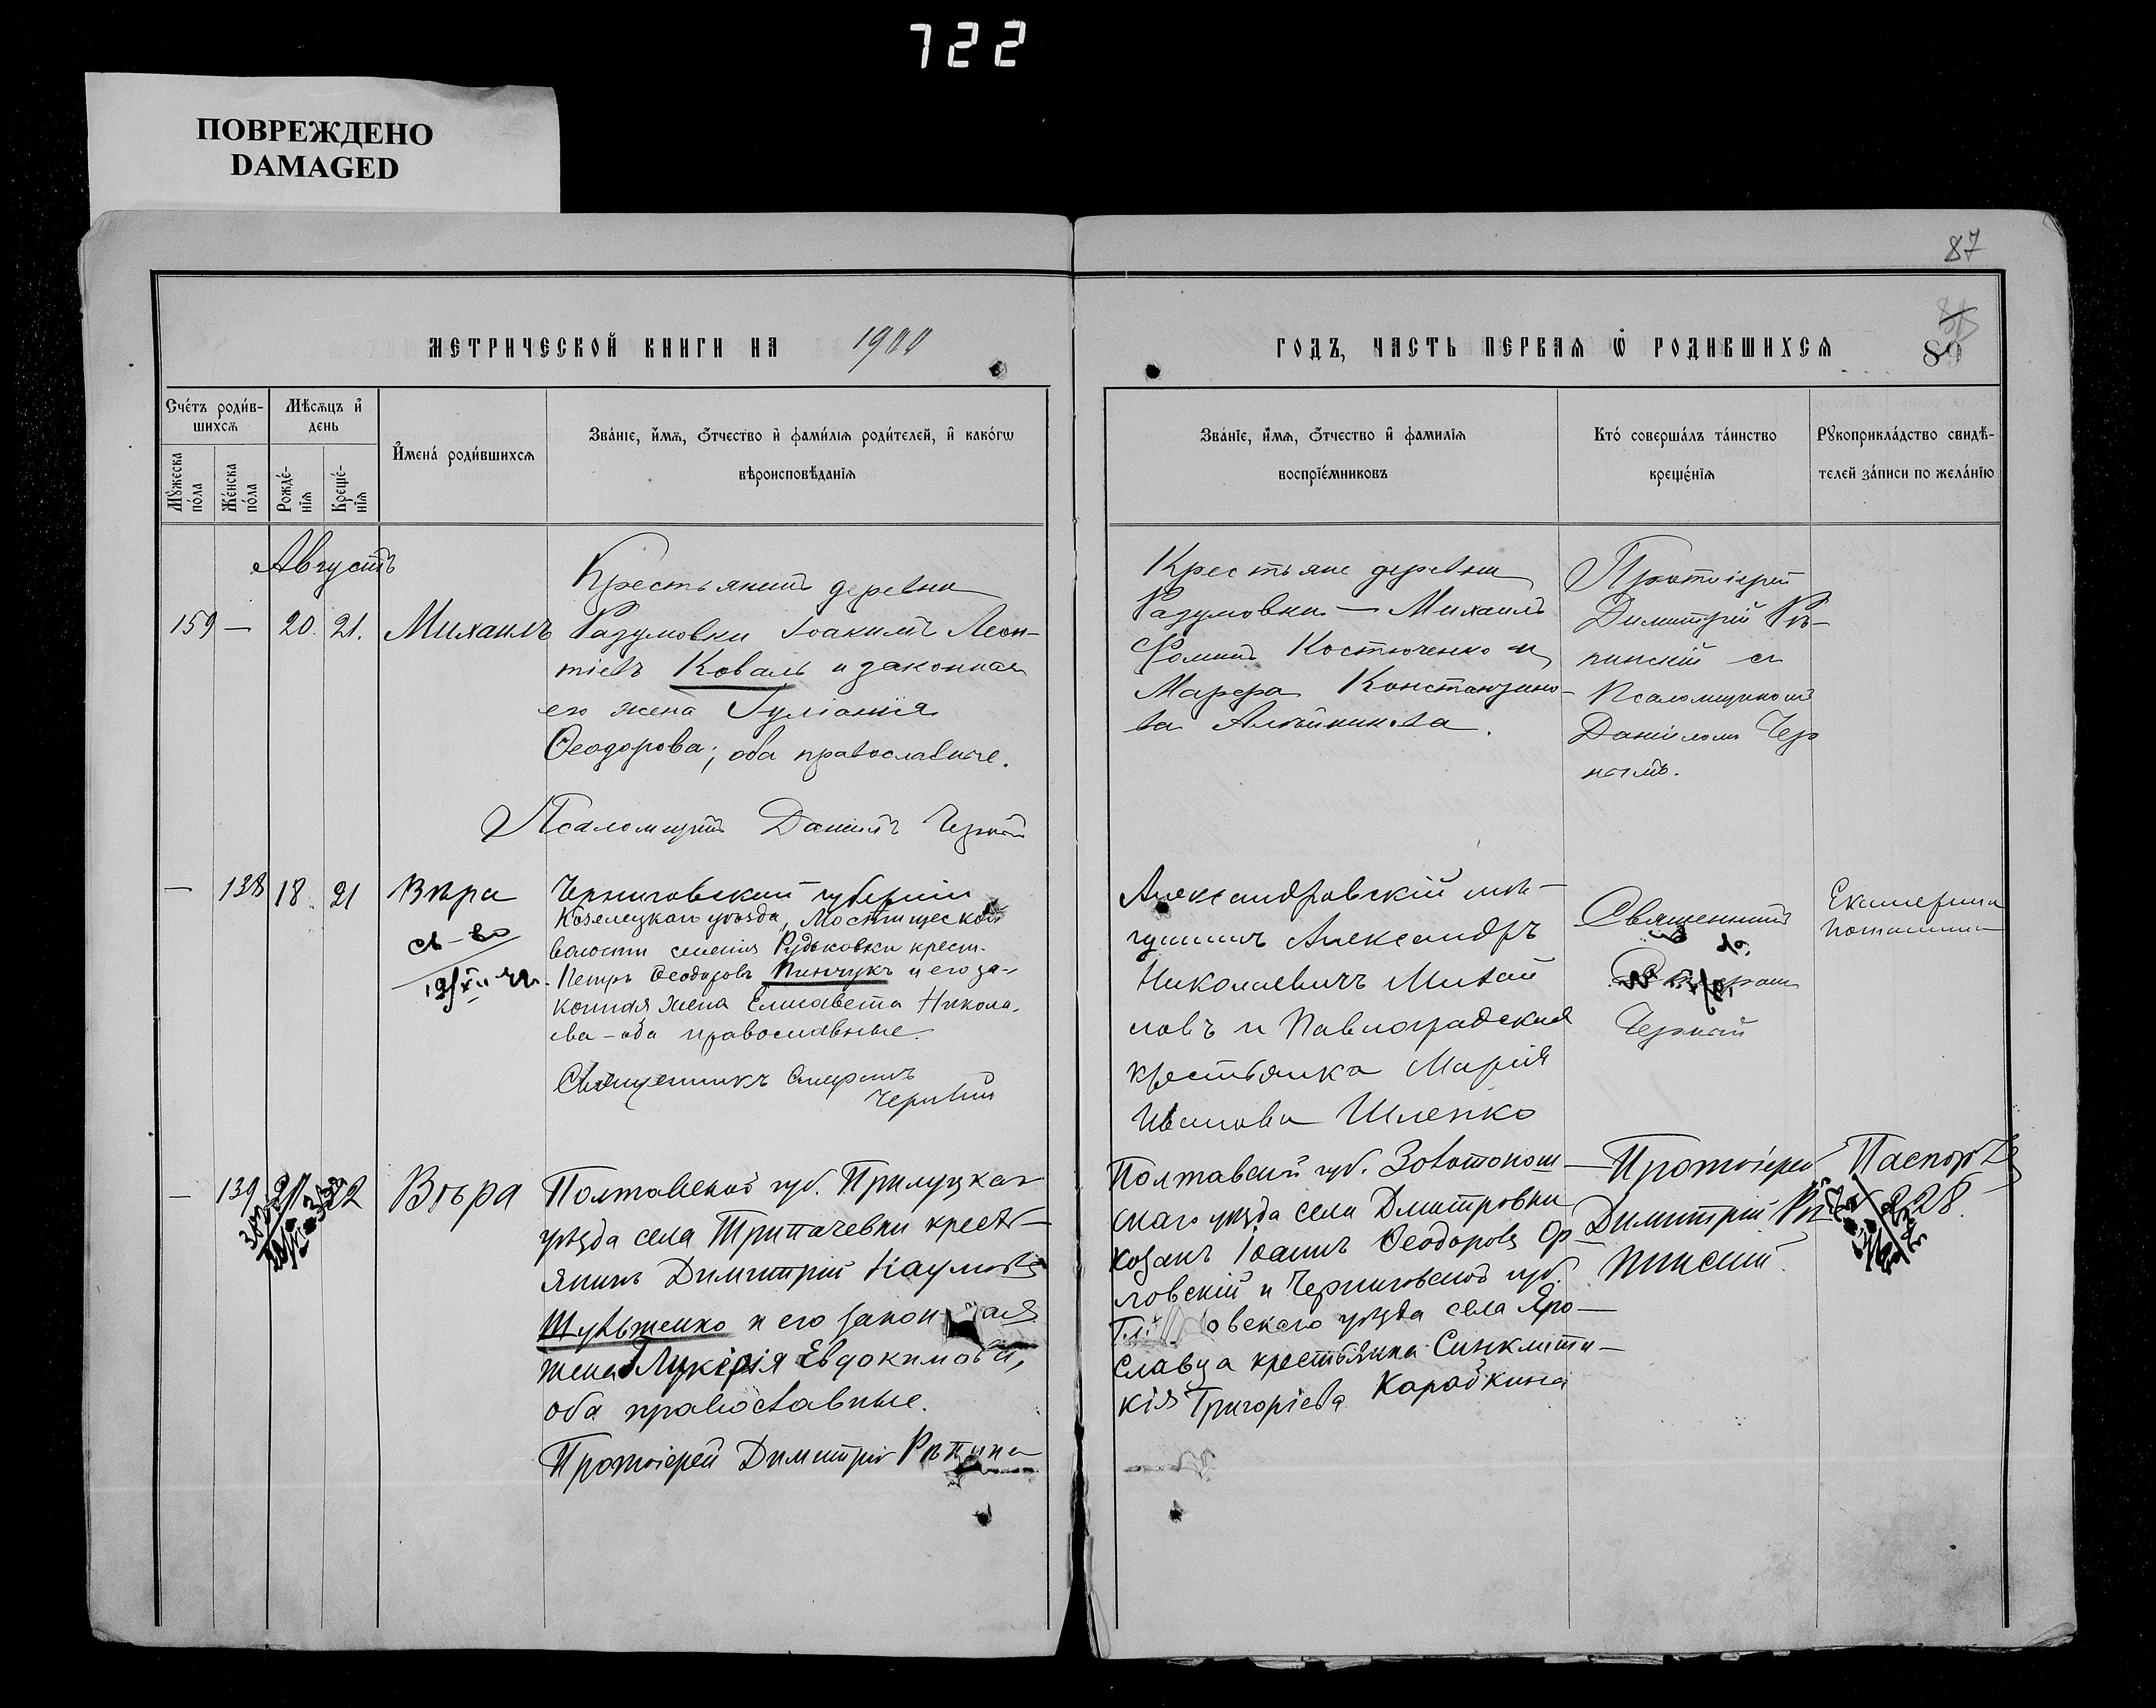 722
ПОВРЕЖДЕНО
DAMAGED
87
МЕТРИЧЕСКОЙ КНИГИ НА 1900
ГОДЪ, ЧАСТЬ ПЕРВАЯ Ѡ РОДИВШИХСЯ
Сче́тъ роди́в-
шихсѧ
Мѣсѧцъ и҆
день
Мꙋ́жеска
по́ла
Же́нска
по́ла
Рожде́-
нїѧ
Креще́-
нїѧ
И҆мена́ роди́вшихсѧ
Зва́нїе, и҆́мѧ, ѻ҆́тчество и҆ фами́лїѧ роди́телей, и҆ како́гѡ
вѣроисповѣ́данїѧ
Зва́нїе, и҆́мѧ, ѻ҆́тчество и҆ фами́лїѧ
воспрїе́мниковъ
Кто́ соверша́лъ та́инство
креще́нїѧ
Рꙋкоприкла́дство свидѣ́-
телей за́писи по жела́нїю
Августъ
159 — 20. 21. Михаилъ
Крестьянинъ деревни
Разумовки Іоакимъ Леон-
тіевъ Коваль и законная
его жена Іуліанія
Ѳеодорова; оба православные.
Псаломщикъ Даниилъ Черный
Крестьяне деревни
Разумовки — Михаилъ
Фоминъ Костюченко и
Марфа Константино-
ва
Протоіерей
Димитрій Рѣ-
пинскій съ
Псаломщикомъ
Данииломъ Чер
нымъ.
— 138 18 21 Вѣра
св-во
Черниговской губерніи
Козелецкаго уѣзда, Мостищеской
волости селенія Рудьковки крест.
Петръ Ѳеодоровъ Пинчукъ и его за-
конная жена Елисавета Никола-
ева – оба православные.
Священникъ
Александровскій мѣ-
щанинъ Александръ
Николаевичъ Михай
ловъ и Павлоградская
крестьянка Марія
Иванова Шленко
Священникъ
Екатерина
— 139 22 Вѣра
Полтавской губ. Прилуцкаго
уѣзда села крестъ-
янинъ Димитрій Наумовъ
и его законная
жена Лукерія Евдокимова,
оба православные.
Протоіерей Димитрій
Полтавской губ. Золотонош-
скаго уѣзда села Дмитровки
козакъ Іоаннъ Ѳеодоровъ Ор-
ловскій и Черниговской губ.
овскаго уѣзда села Яро-
славца крестьянка Синклити-
кія Григоріева
Протоіерей
Димитрій Рѣ-
пинскій.
Паспортъ
228.